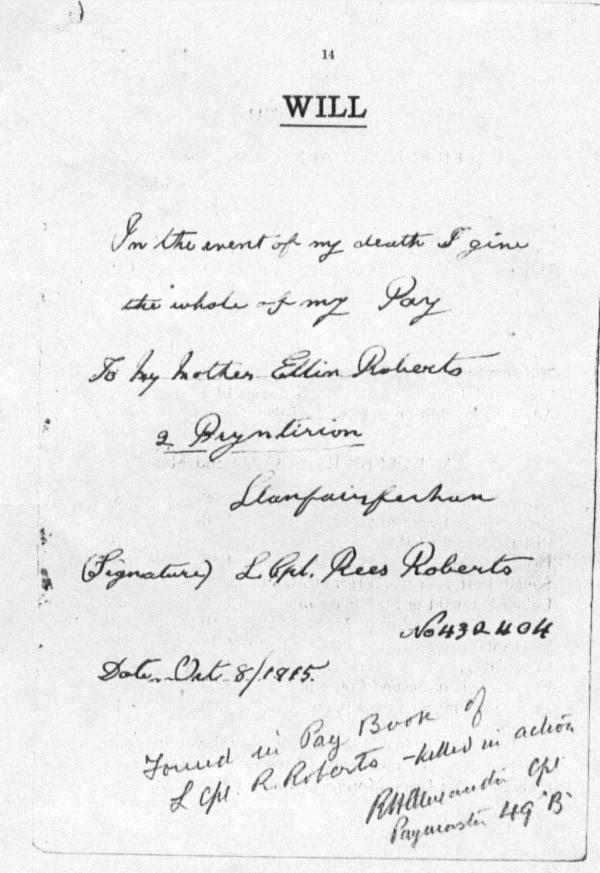 14
WILL
In the event of my death I give
the whole of my Pay
To My Mother Ellin Roberts
2 Brynlirion
Llanfairfechan
(Signature) L Cpl. Rees Roberts
No 432404
Date Oct 8/1915.
Found in Pay Book of
L Cpl. R. Roberts - killed in action
RH Alexander Cpt
Paymaster 49 "B"